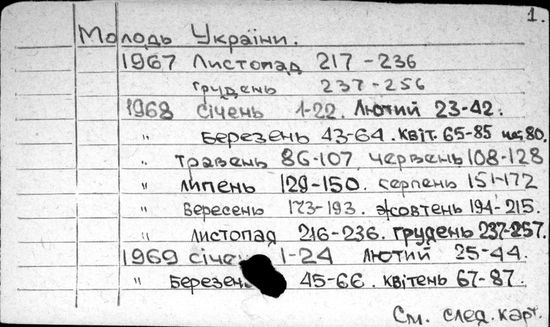 1.
Молодь України.
1967 Листопад 217-236
грудень 237-256
1968 січень 1-22. Лютий 23-42.
" Березень 43-64. квіт. 65-85 80.
" травень 86-107, червень 108-128
" липень 129-150. серпень 151-172
" вересень 173-193. жовтень 194-215.
" листопад 216-236. грудень 237-257.
1969 січе 1-24 Лютий 25-44.
" Березен 45-66. квітень 67-87.
См. след. карт.